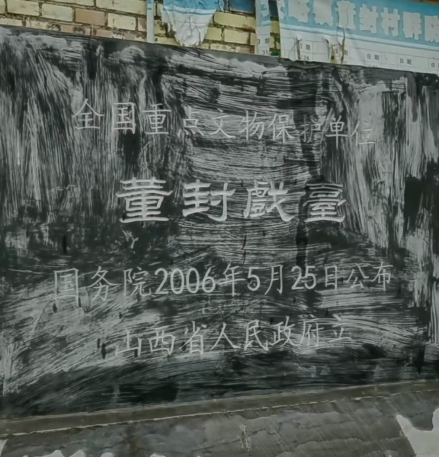 董封村
全国重点文物保护单位
董封戲臺
国务院2006年5月25日公布
山西省人民政府立